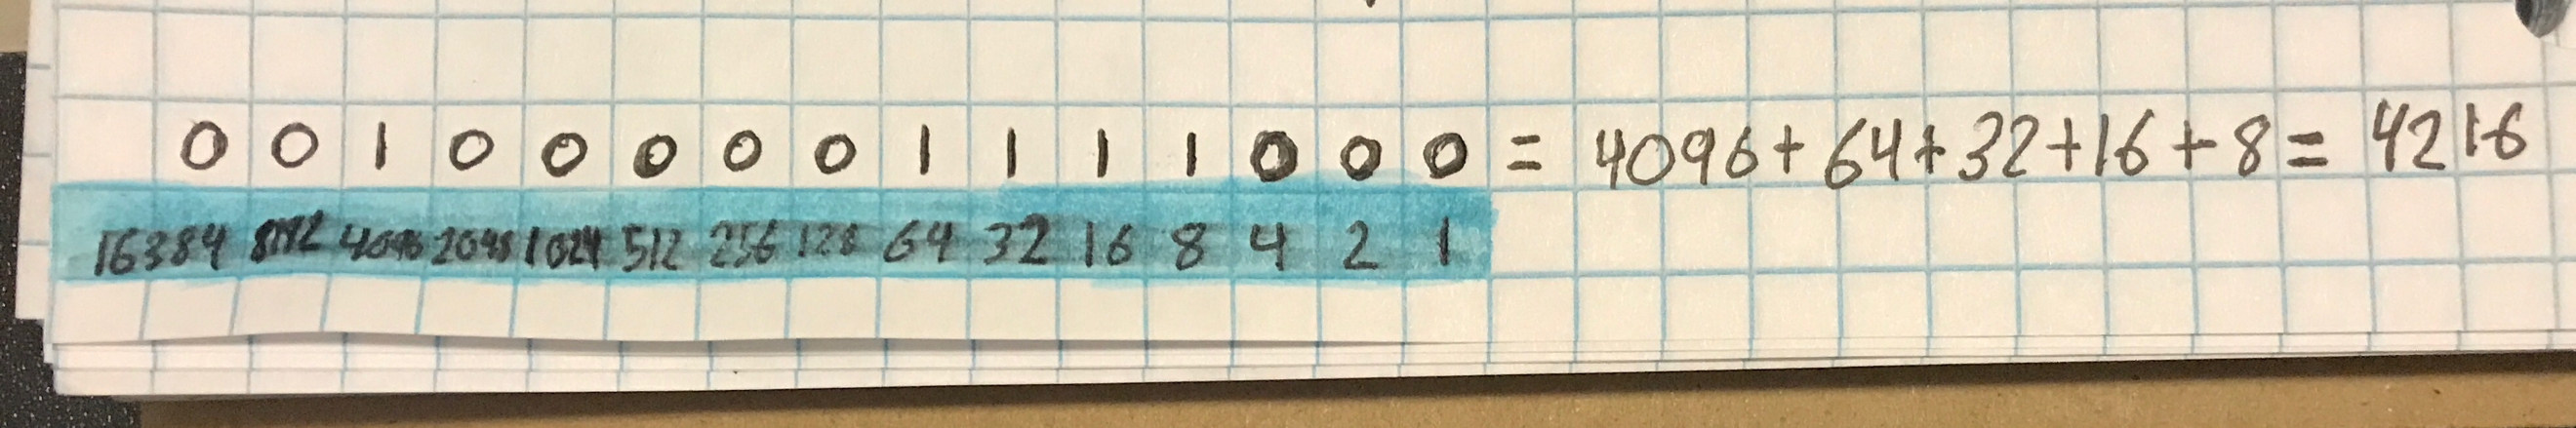 0 0 1 0 0 0 0 0 1 1 1 1 0 0 0 = 4096 + 64 + 32 + 16 + 8 = 4216
16384 8192 4096 2048 1024 512 256 128 64 32 16 8 4 2 1